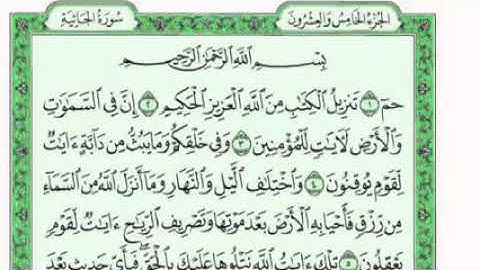 سُورَةُ الجَاثِيَةِ الجُزْءُ الخَامِسُ وَالعِشْرُونَ
بِسْمِ اللَّهِ الرَّحْمَٰنِ الرَّحِيمِ
حمٓ ١ تَنزِيلُ الْكِتَٰبِ مِنَ اللَّهِ الْعَزِيزِ الْحَكِيمِ ٢ إِنَّ فِي السَّمَٰوَٰتِ
وَالْأَرْضِ لَآيَٰتٍ لِّلْمُؤْمِنِينَ ٣ وَفِي خَلْقِكُمْ وَمَا يَبُثُّ مِن دَآبَّةٍ ءَايَٰتٌ
لِّقَوْمٍ يُوقِنُونَ ٤ وَاخْتِلَٰفِ الَّيْلِ وَالنَّهَارِ وَمَآ أَنزَلَ اللَّهُ مِنَ السَّمَآءِ
مِن رِّزْقٍ فَأَحْيَا بِهِ الْأَرْضَ بَعْدَ مَوْتِهَا وَتَصْرِيفِ الرِّيَٰحِ ءَايَٰتٌ لِّقَوْمٍ
يَعْقِلُونَ ٥ تِلْكَ ءَايَٰتُ اللَّهِ نَتْلُوهَا عَلَيْكَ بِالْحَقِّ فَبِأَيِّ حَدِيثٍ بَعْدَ